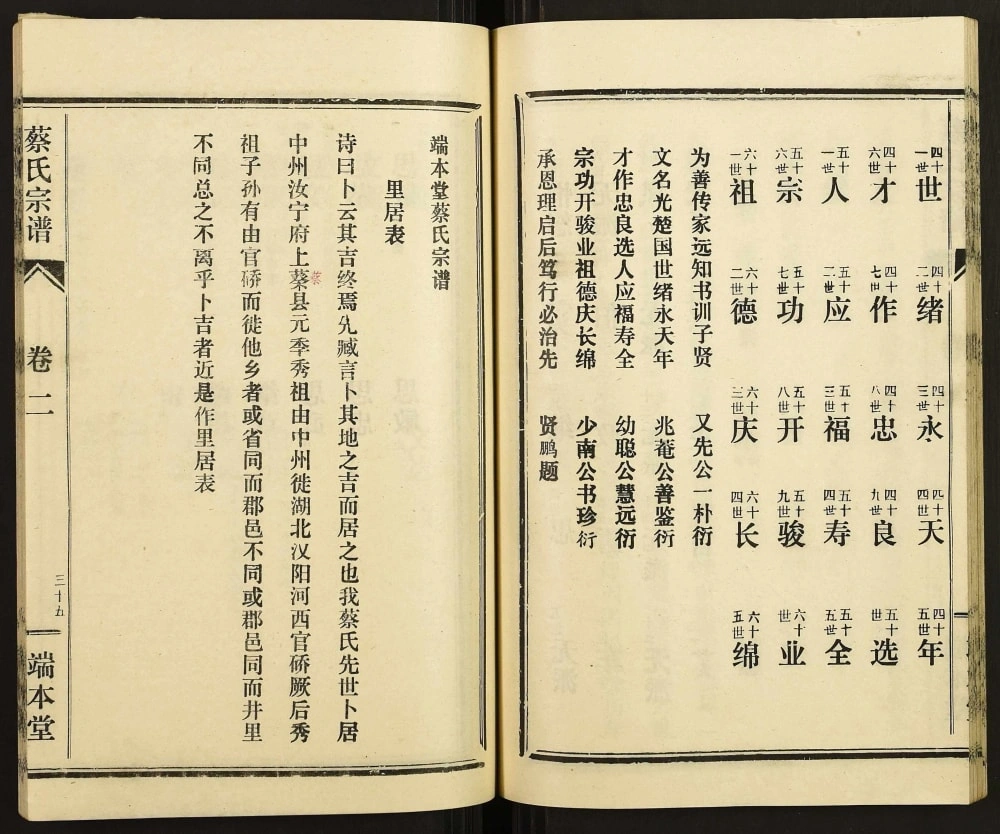 四十一世 世 四十二世 绪 四十三世 永 四十四世 天 四十五世 年
四十六世 才 四十七世 作 四十八世 忠 四十九世 良 五十世 选
五十一世 人 五十二世 应 五十三世 福 五十四世 寿 五十五世 全
五十六世 宗 五十七世 功 五十八世 开 五十九世 骏 六十世 业
六十一世 祖 六十二世 德 六十三世 庆 六十四世 长 六十五世 绵
为善传家远知书训子贤 又先公一朴衍
文名光楚国世绪永天年 兆菴公善鉴衍
才作忠良选人应福寿全 幼聪公慧远衍
宗功开骏业祖德庆长绵 少南公书珍衍
承恩理启后笃行必治先 贤鹏题
端本堂蔡氏宗谱
里居表
诗曰卜云其吉终焉允臧言卜其地之吉而居之也我蔡氏先世卜居
中州汝宁府上蔡县元季秀祖由中州徙湖北汉阳河西官硚厥后秀
蔡
祖子孙有由官硚而徙他乡者或省同而郡邑不同或郡邑同而井里
不同总之不离乎卜吉者近是作里居表
蔡氏宗谱 卷二 三十五 端本堂